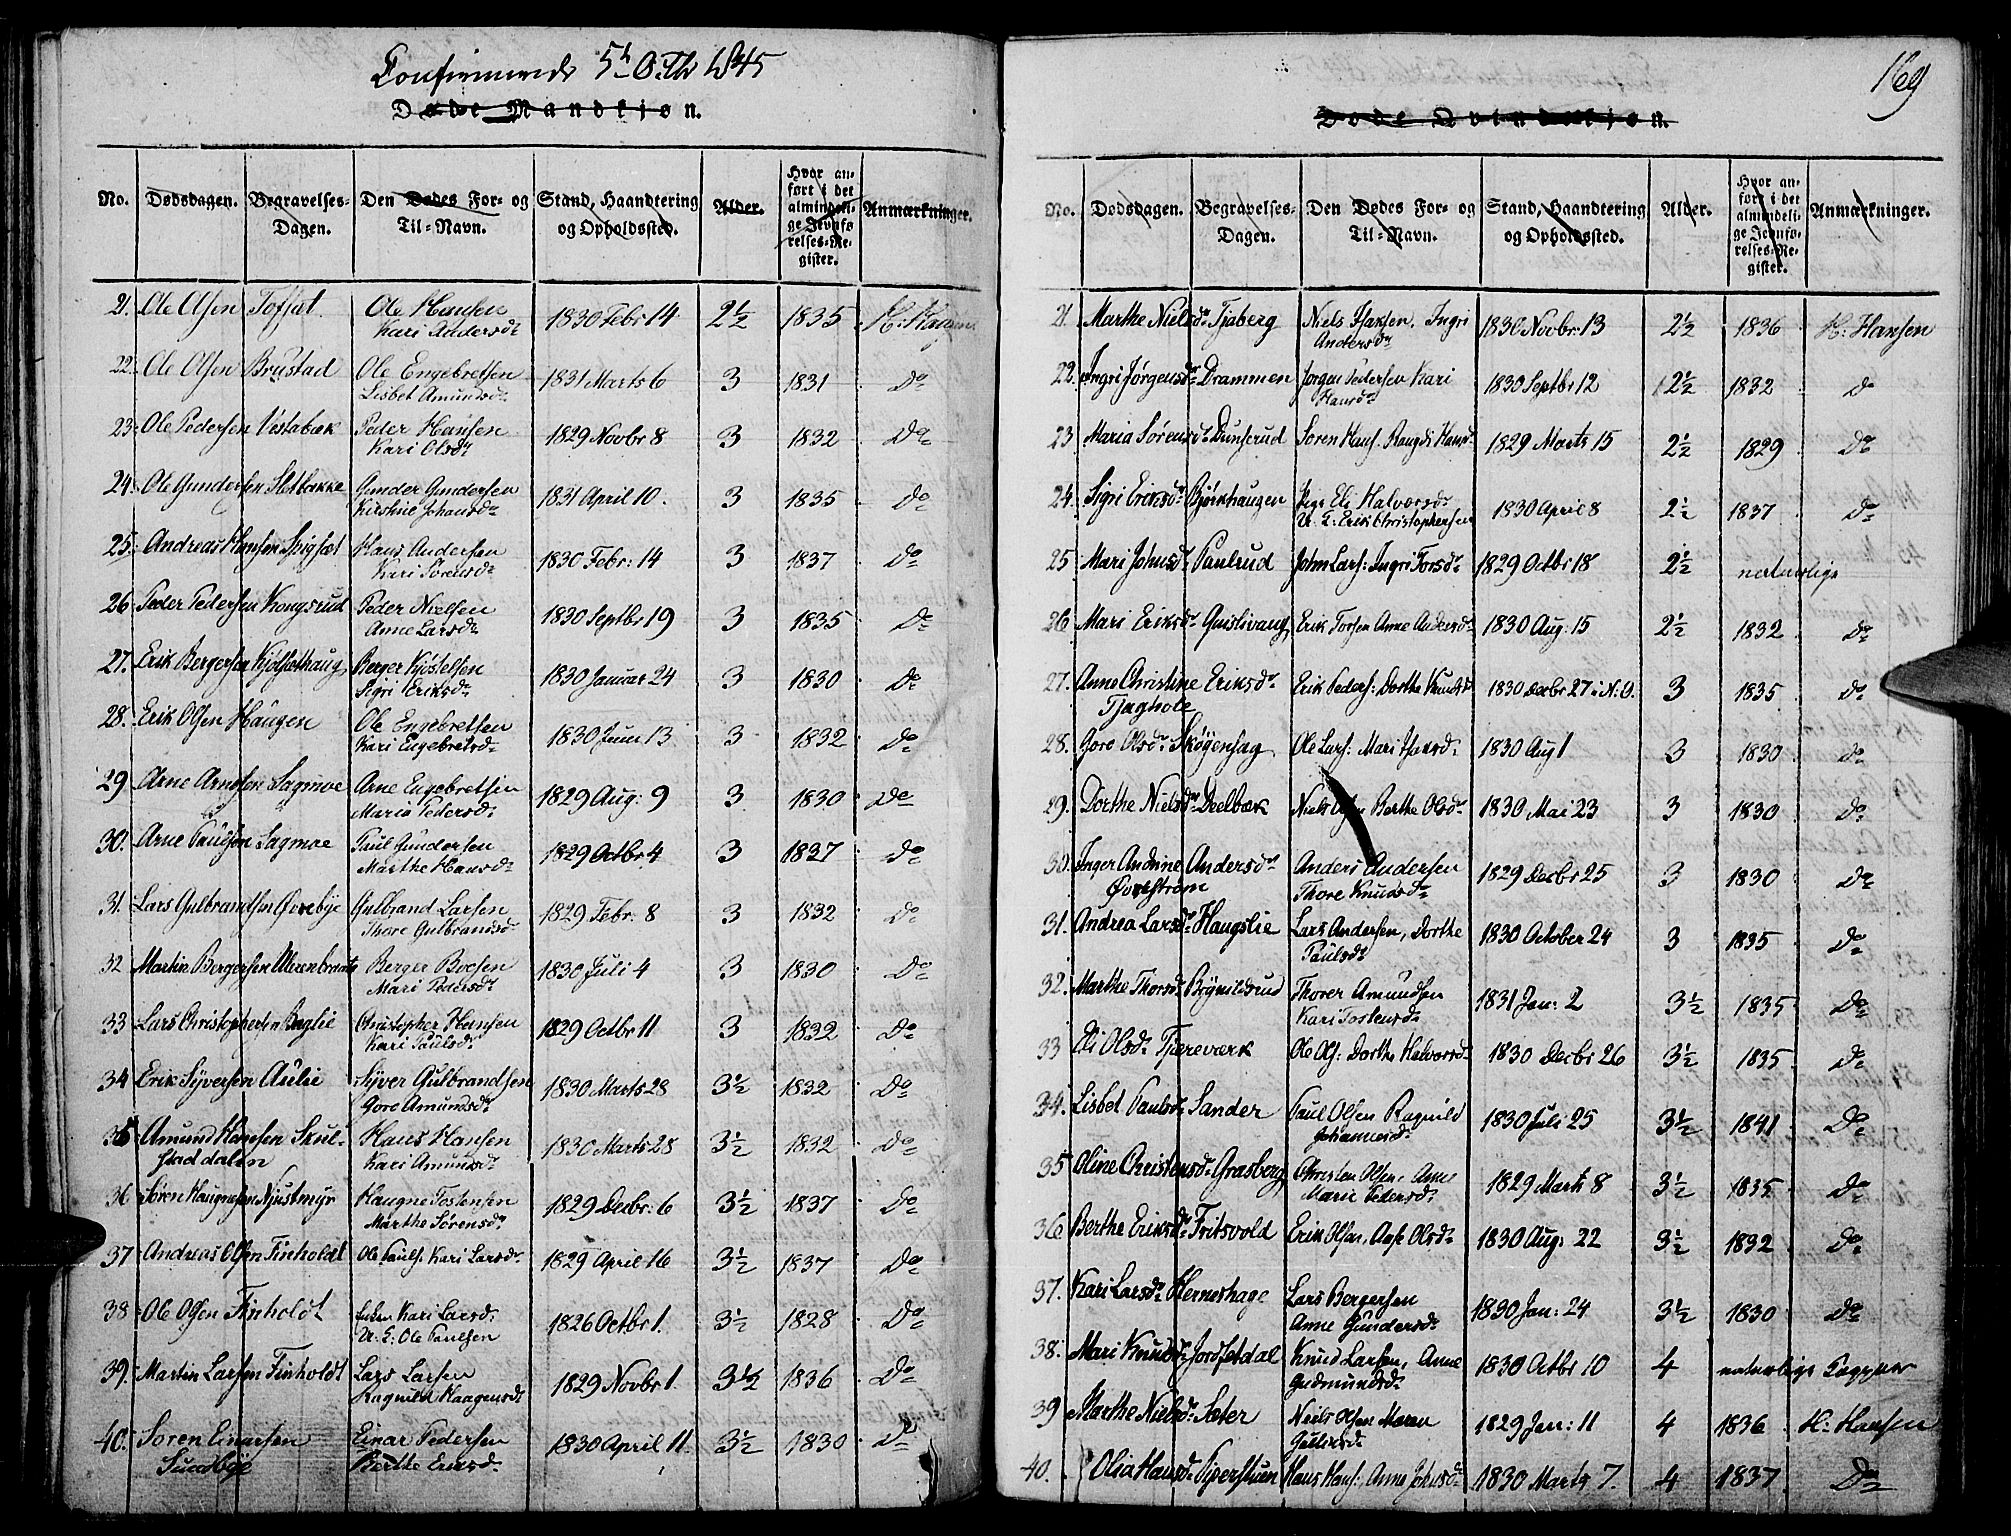 Confirmerede 5t Octbr 1845
Døde Mandkjøn.
No. Dødsdagen. Begravelses-Dagen. Den Dødes For- og Til-Navn. Stand, Haandtering og Opholdssted. Alder. Hvor anført i det almindelige Jevnførelses-Register. Anmærkninger.
21. Ole Olsen Tofsæt. Ole Hansen 1830 Febr 14 2½ 1835
Kari Andersdr
22. Ole Olsen Brustad Ole Engebretsen 1831 Marts 6 3 1831 Do
Lisbet Amundsdr
23. Ole Pedersen Vestabæk Peder Hansen 1829 Novbr 8 3 1832 Do
Kari Olsdr
24. Ole Gundersen Gunder Gundersen 1831 April 10. 3 1835 Do
Kirstine Johansdr
25. Andreas Hansen Hans Andersen 1830 Febr: 14 3 1837 Do
Kari Sørensdr
26 Peder Pedersen Kongsrud Peder Nielsen 1830 Septbr 19 3 1835 Do
Anne Larsdr
27. Erik Bergersen Berger Kjøstelsen 1830 Januar 24 3 1830 Do
Sigri Eriksdr
28. Erik Olsen Haugen Ole Engebretsen 1830 Juni 13 3 1832 Do
Kari Engebretsdr
29 Arne Arnesen Sagmoe Arne Engebretsen 1829 Aug: 9 3 1830 Do
Maria Pedersdr
30. Arne Paulsen Sagmoe Paul Gundersen 1829 Octbr 4 3 1837 Do
Marthe Hansdr
31. Lars Gulbrandsen Øvrebye Gulbrand Larsen 1829 Febr: 8 3 1832 Do
Thore Gulbrandsdr
32 Martin Bergersen Berger Boesen 1830 Juli 4 3 1830 Do
Mari Pedersdr
33 Lars Christophersen Christopher Hansen 1829 Octbr 11 3 1832 Do
Kari Paulsdr
34 Erik Syversen Aulie Syver Gulbrandsen 1830 Marts 28 3½ 1832 Do
Goro Amundsdr
35 Amund Hansen Skul- Hans Hansen 1830 Marts 28 3½ 1832 Do
staddalen Kari Amundsdr
36 Søren Haugnesen Haugne Tostensen 1829 Decbr: 6 3½ 1837 Do
Marthe Sørensdr
37 Andreas Olsen Finholdt Ole Pauls: Kari Larsdr 1829 April 16 3½ 1837 Do
38 Ole Olsen Finholdt Enken Kari Larsdr 1826 Octbr 1. 3½ 1828 Do
U. F: Ole Paulsen
39. Martin Larsen Finholdt Lars Larsen 1829 Novbr 1. 3½ 1836 Do
Ragnild Haagensdr
40. Søren Einarsen Einar Pedersen 1830 April 11. 3½ 1830 Do
Sundbye Berthe Eriksdr
169
Døde Qvindekjøn.
No. Dødsdagen. Begravelses-Dagen. Den Dødes For- og Til-Navn. Stand, Haandtering og Opholdssted. Alder. Hvor anført i det almindelige Jevnførelses-Register. Anmærkninger.
21 Marthe Nielsdr Tjaberg Niels Isaksen, Ingri 1830 Novbr 13 2½ 1836 H: Hansen
Andersdr
22. Ingri Jørgensdr Drammen Jørgen Pedersen Kari 1830 Septbr 12 2½ 1832 Do
Hansdr
23 Maria Sørensdr Dunserud Søren Hans: Rangdi Hansdr 1829 Marts 15 2½ 1829 Do
24. Sigri Eriksdr Bjørkhaugen Pige Eli Halvorsdr 1830 April 8 2½ 1837 Do
U. F: Erik Christophersen
25 Mari Johnsdr Paulrud John Lars: Ingri Torsdr 1829 Octbr 18 2½ naturlige
26 Mari Eriksdr Erik Torsen Anne Andersdr 1830 Aug: 15 2½ 1832 Do
27. Anne Christine Eriksdr Erik Peders: Dorthe Knudsdr 1830 Decbr 27 i N: O. 3 1835 Do
28. Goro Olsdr Ole Lars: Mari Isaksdr 1830 Aug 1 3 1830 Do
29. Dorthe Nielsdr Deelbæk Niels Olsen Berthe Olsdr 1830 Mai 23 3 1830 Do
30. Inger Andrine Andersdr Anders Andersen 1829 Decbr 25 3 1830 Do
Øvrestrøm Thore Knudsdr
31. Andrea Larsdr Haugslie Lars Andersen, Dorthe 1830 October 24 3 1835 Do
Paulsdr
32. Marthe Thorsdr Bøgnildsrud Thorer Amundsen 1831 Jan: 2 3½ 1835 Do
Kari Tostensdr
33 Eli Olsdr Tjæreværk Ole Ols: Dorthe Halvorsdr 1830 Decbr 26 3½ 1835 Do
34. Lisbet Paulsdr Sander Paul Olsen Ragnild 1830 Juli 25 3½ 1841 Do
Johannesdr
35 Oline Christensdr Grasberg Christen Olsen, Anne 1829 Marts 8 3½ 1835 Do
Marie Pedersdr
36 Berthe Eriksdr Fritsvold Erik Olsen, Olsdr 1830 Aug: 22 3½ 1832 Do
37. Kari Larsdr Herneshage Lars Bergersen 1830 Jan: 24 3½ 1830 Do
Anne Gundersdr
38. Mari Knudsdr Jordsetdal Knud Larsen, Anne 1830 Octbr 10 4 naturlige
Gudmundsdr
39 Marthe Nielsdr Sæter Niels Olsen Maren 1829 Jan: 11 4 1836 H: Hansen
40. Olia Hansdr Hans Hans: Anne Johnsdr 1830 Marts 7. 4 1837 Do